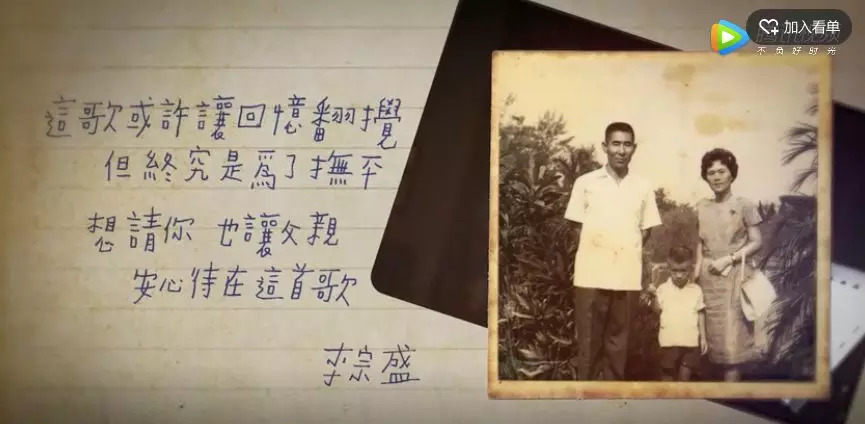 這歌或許讓回憶翻攪
但終究是為了撫平
想請你 也讓父親
安心待在這首歌
李宗盛
加入看单
不负好时光